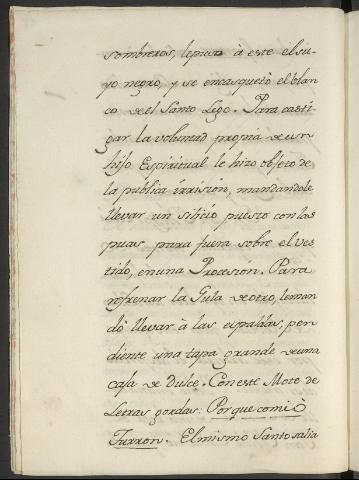 sombreros, le puso à este el su-
yo negro, y se encasquetò el blan
co de el Santo Lego. Para casti
gar la voluntad propria de un
hijo Espiritual le hizo objeto de
la publica irrisión, mandandole
llevar un silicio puesto con las
puas para fuera sobre el ves
tido, en una Procesión. Para
refrenar la Gula de otro, le man
dò llevar à las espaldas, pen
diente una tapa grande de una
caja de dulce. Con este Mote de
Letras gordas: Por que comiò
Turron. El mismo Santo salia